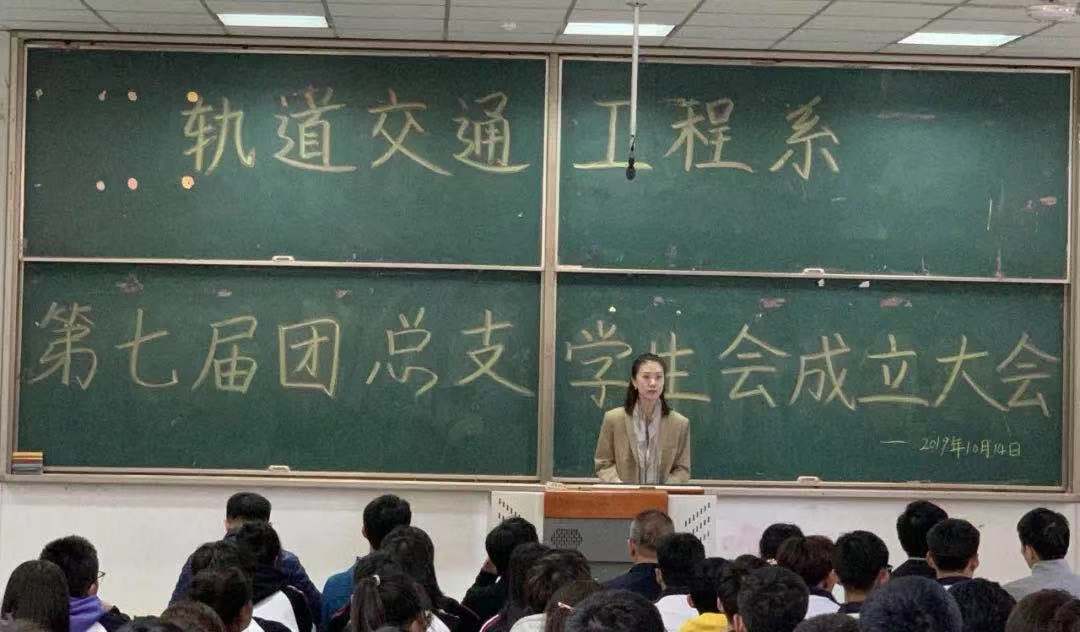 轨道交通工程系
第七届团总支学生会成立大会
— 2019年10月14日